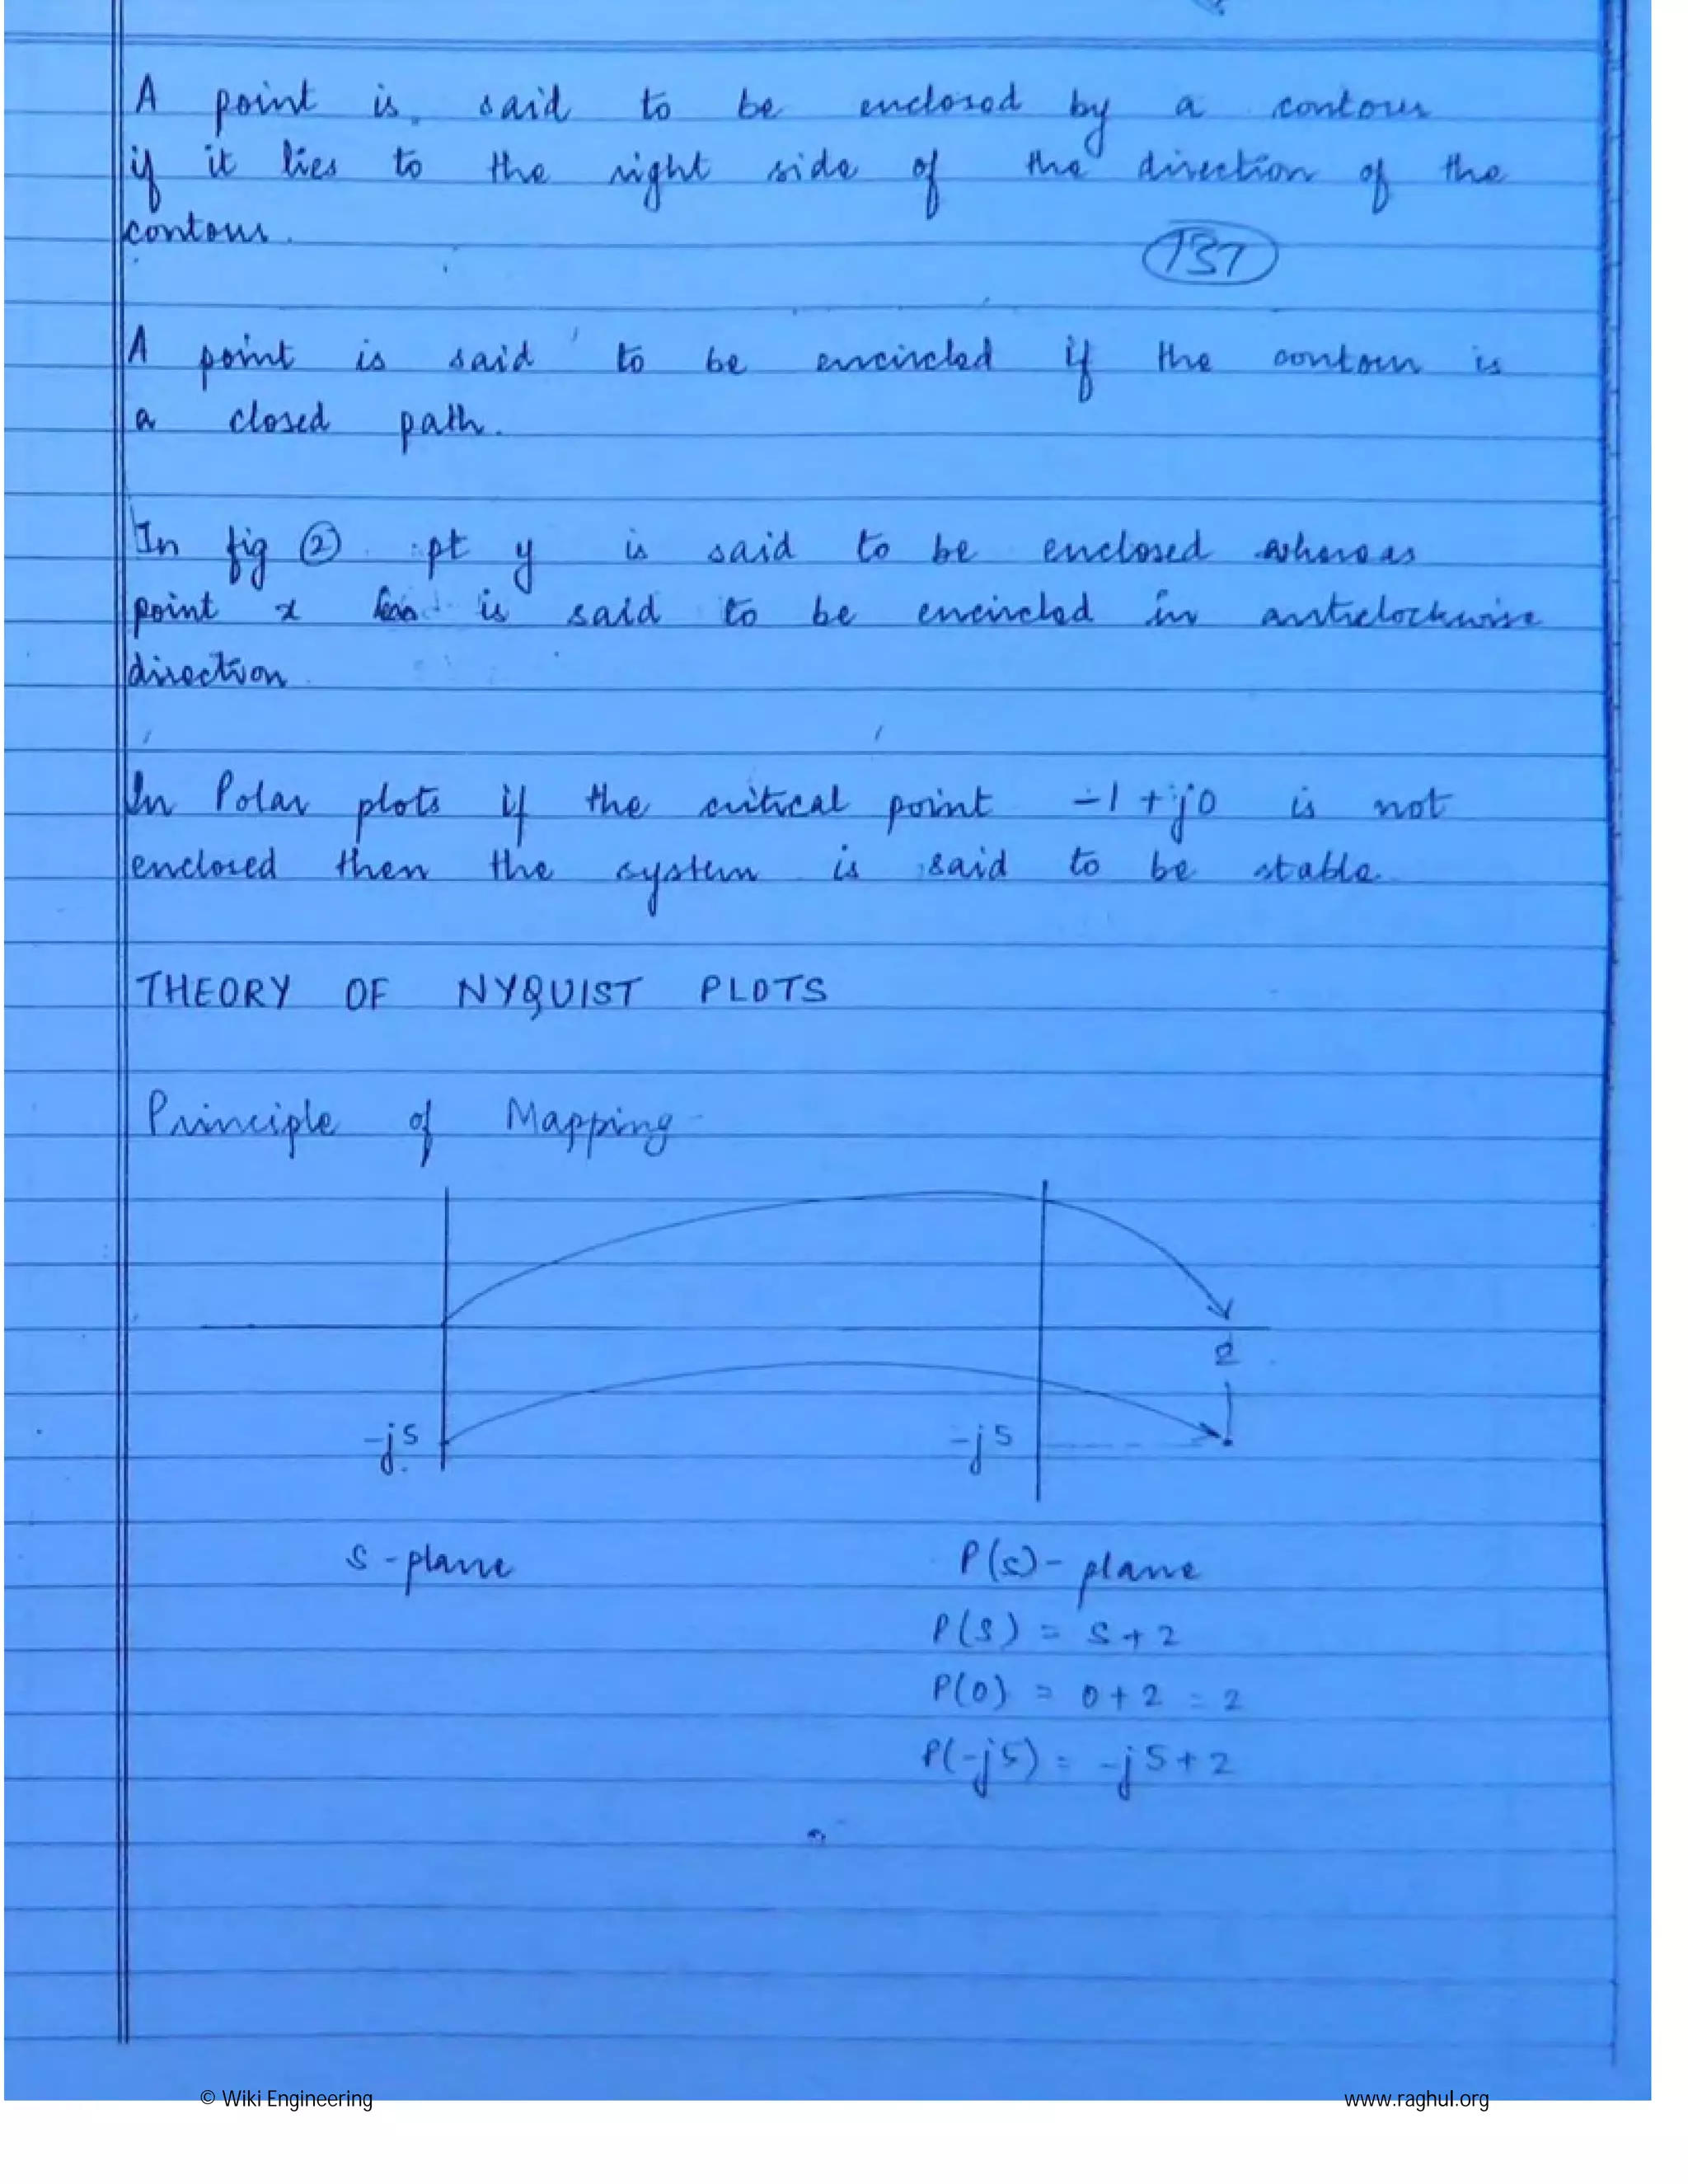 A point is said to be enclosed by a contour
if it lies to the right side of the direction of the
contour.
137
A point is said to be encircled if the contour is
a closed path.
In fig ② pt y is said to be enclosed whereas
point x is said to be encircled in anticlockwise
direction
In Polar plots if the critical point -1+j0 is not
enclosed then the system is said to be stable
THEORY OF NYQUIST PLOTS
Principle of Mapping
2
-j5 -j5
S-plane P(s)-plane
P(S) = S+2
P(0) = 0+2 = 2
P(-j5) = -j5+2
© Wiki Engineering www.raghul.org